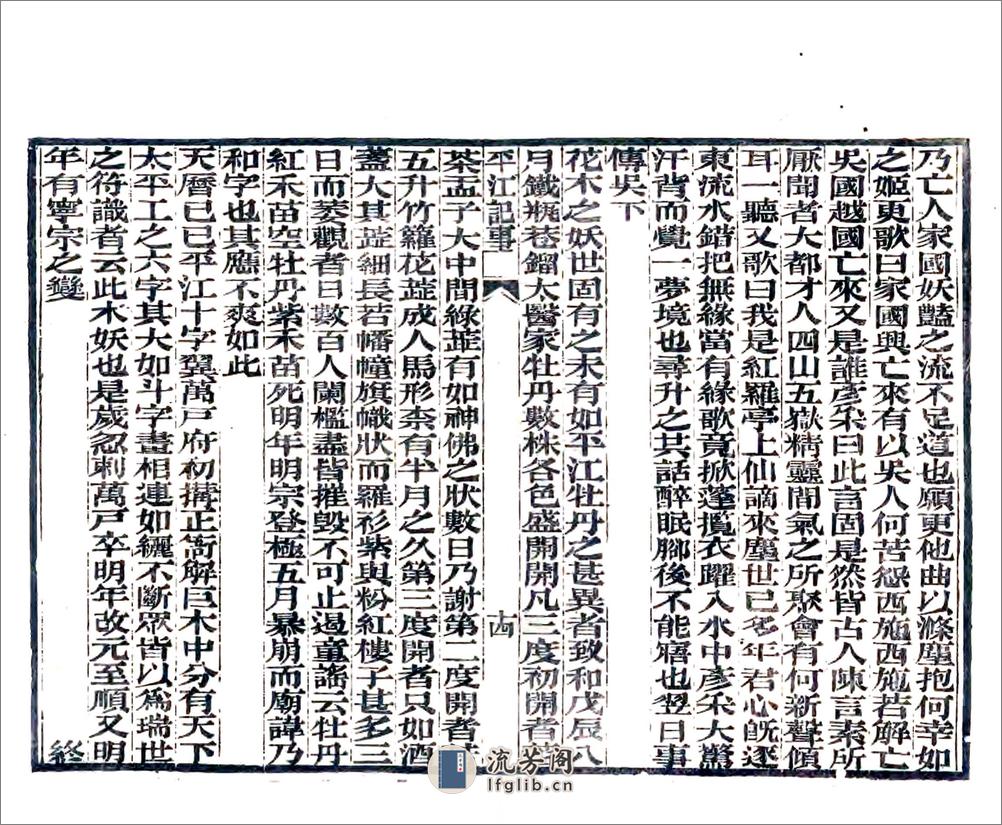 乃亡人家國妖豔之流不足道也願更他曲以滌塵抱何幸如
之姬更歌曰家國興亡來有以吳人何苦怨西施西施若解亡
吳國越國亡來又是誰彥采曰此言固是然皆古人陳言素所
厭聞者大都才人四山五嶽精靈間氣之所聚會有何新聲傾
耳一聽又歌曰我是紅羅亭上仙謫來塵世已多年君心旣逐
東流水錯把無緣當有緣歌竟掀蓬攬衣躍入水中彥采大驚
汗背而覺一夢境也尋升之共話醉眠腳後不能寤也翌日事
傳吳下
花木之妖世固有之未有如平江牡丹之甚異者致和戊辰八
月鐵瓶巷鎦太醫家牡丹數株各色盛開開凡三度初開者
平江記事 古
茶盂子大中間綠蕋有如神佛之狀數日乃謝第二度開者
五升竹籮花蕋成人馬形柰有半月之久第三度開者只如酒
盞大其蕋細長若幡幢旗幟狀而羅衫紫與粉紅樓子甚多三
日而萎觀者日數百人闌檻盡皆摧毀不可止遏童謠云牡丹
紅禾苗空牡丹紫禾苗死明年明宗登極五月暴崩而廟諱乃
和字也其應不爽如此
天曆己巳平江十字翼萬戶府初搆正衙解巨木中分有天下
太平工之六字其大如斗字畫相連如纚不斷眾皆以爲瑞世
之符識者云此木妖也是歲忽剌萬戶卒明年改元至順又明
年有寧宗之變 終
流芳阁
lfglib.cn